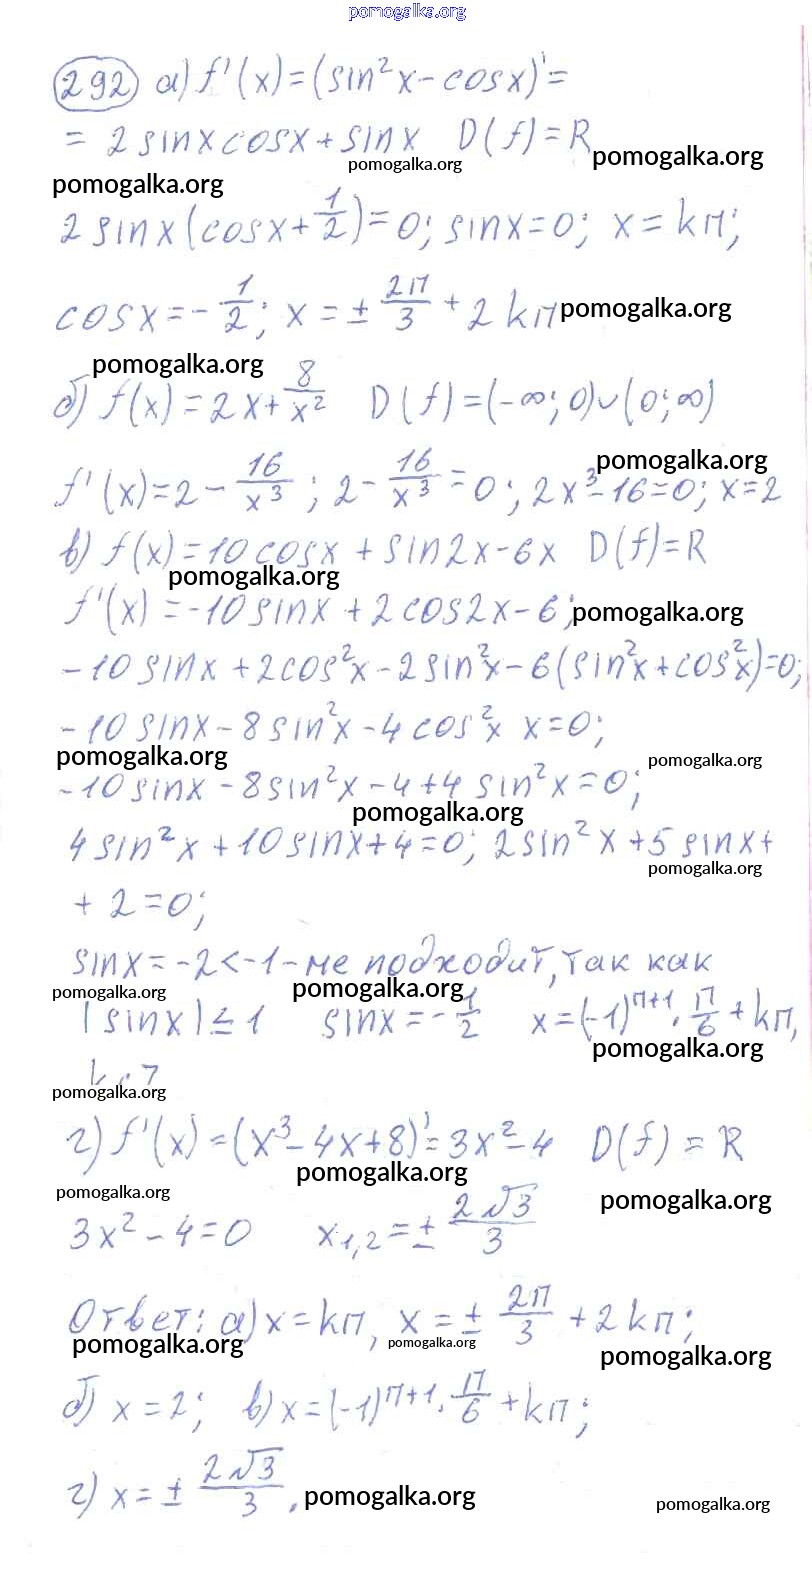 pomogalka.org
292 а) f'(x)=(sin²x-cosx)'=
= 2sinxcosx+sinx D(f)=R
pomogalka.org pomogalka.org
pomogalka.org
2sinx(cosx+1/2)=0; sinx=0; x=kπ;
cosx=-1/2; x=±2π/3+2kπ pomogalka.org
pomogalka.org
б) f(x)=2x+8/x² D(f)=(-∞;0)∪(0;∞)
pomogalka.org
f'(x)=2-16/x³; 2-16/x³=0; 2x³-16=0; x=2
в) f(x)=10cosx+sin2x-6x D(f)=R
pomogalka.org
f'(x)=-10sinx+2cos2x-6; pomogalka.org
-10sinx+2cos²x-2sin²x-6(sin²x+cos²x)=0;
-10sinx-8sin²x-4cos²x x=0;
pomogalka.org pomogalka.org
-10sinx-8sin²x-4+4sin²x=0;
pomogalka.org
4sin²x+10sinx+4=0; 2sin²x+5sinx+
pomogalka.org
+2=0;
sinx=-2<-1-не подходит, так как
pomogalka.org pomogalka.org
|sinx|≤1 sinx=-1/2 x=(-1)ⁿ⁺¹·π/6+kπ,
pomogalka.org
pomogalka.org
г) f'(x)=(x³-4x+8)'=3x²-4 D(f)=R
pomogalka.org
pomogalka.org pomogalka.org
3x²-4=0 x₁,₂=±2√3/3
Ответ: а) x=kπ, x=±2π/3+2kπ;
pomogalka.org pomogalka.org pomogalka.org
б) x=2; в) x=(-1)ⁿ⁺¹·π/6+kπ;
г) x=±2√3/3. pomogalka.org pomogalka.org